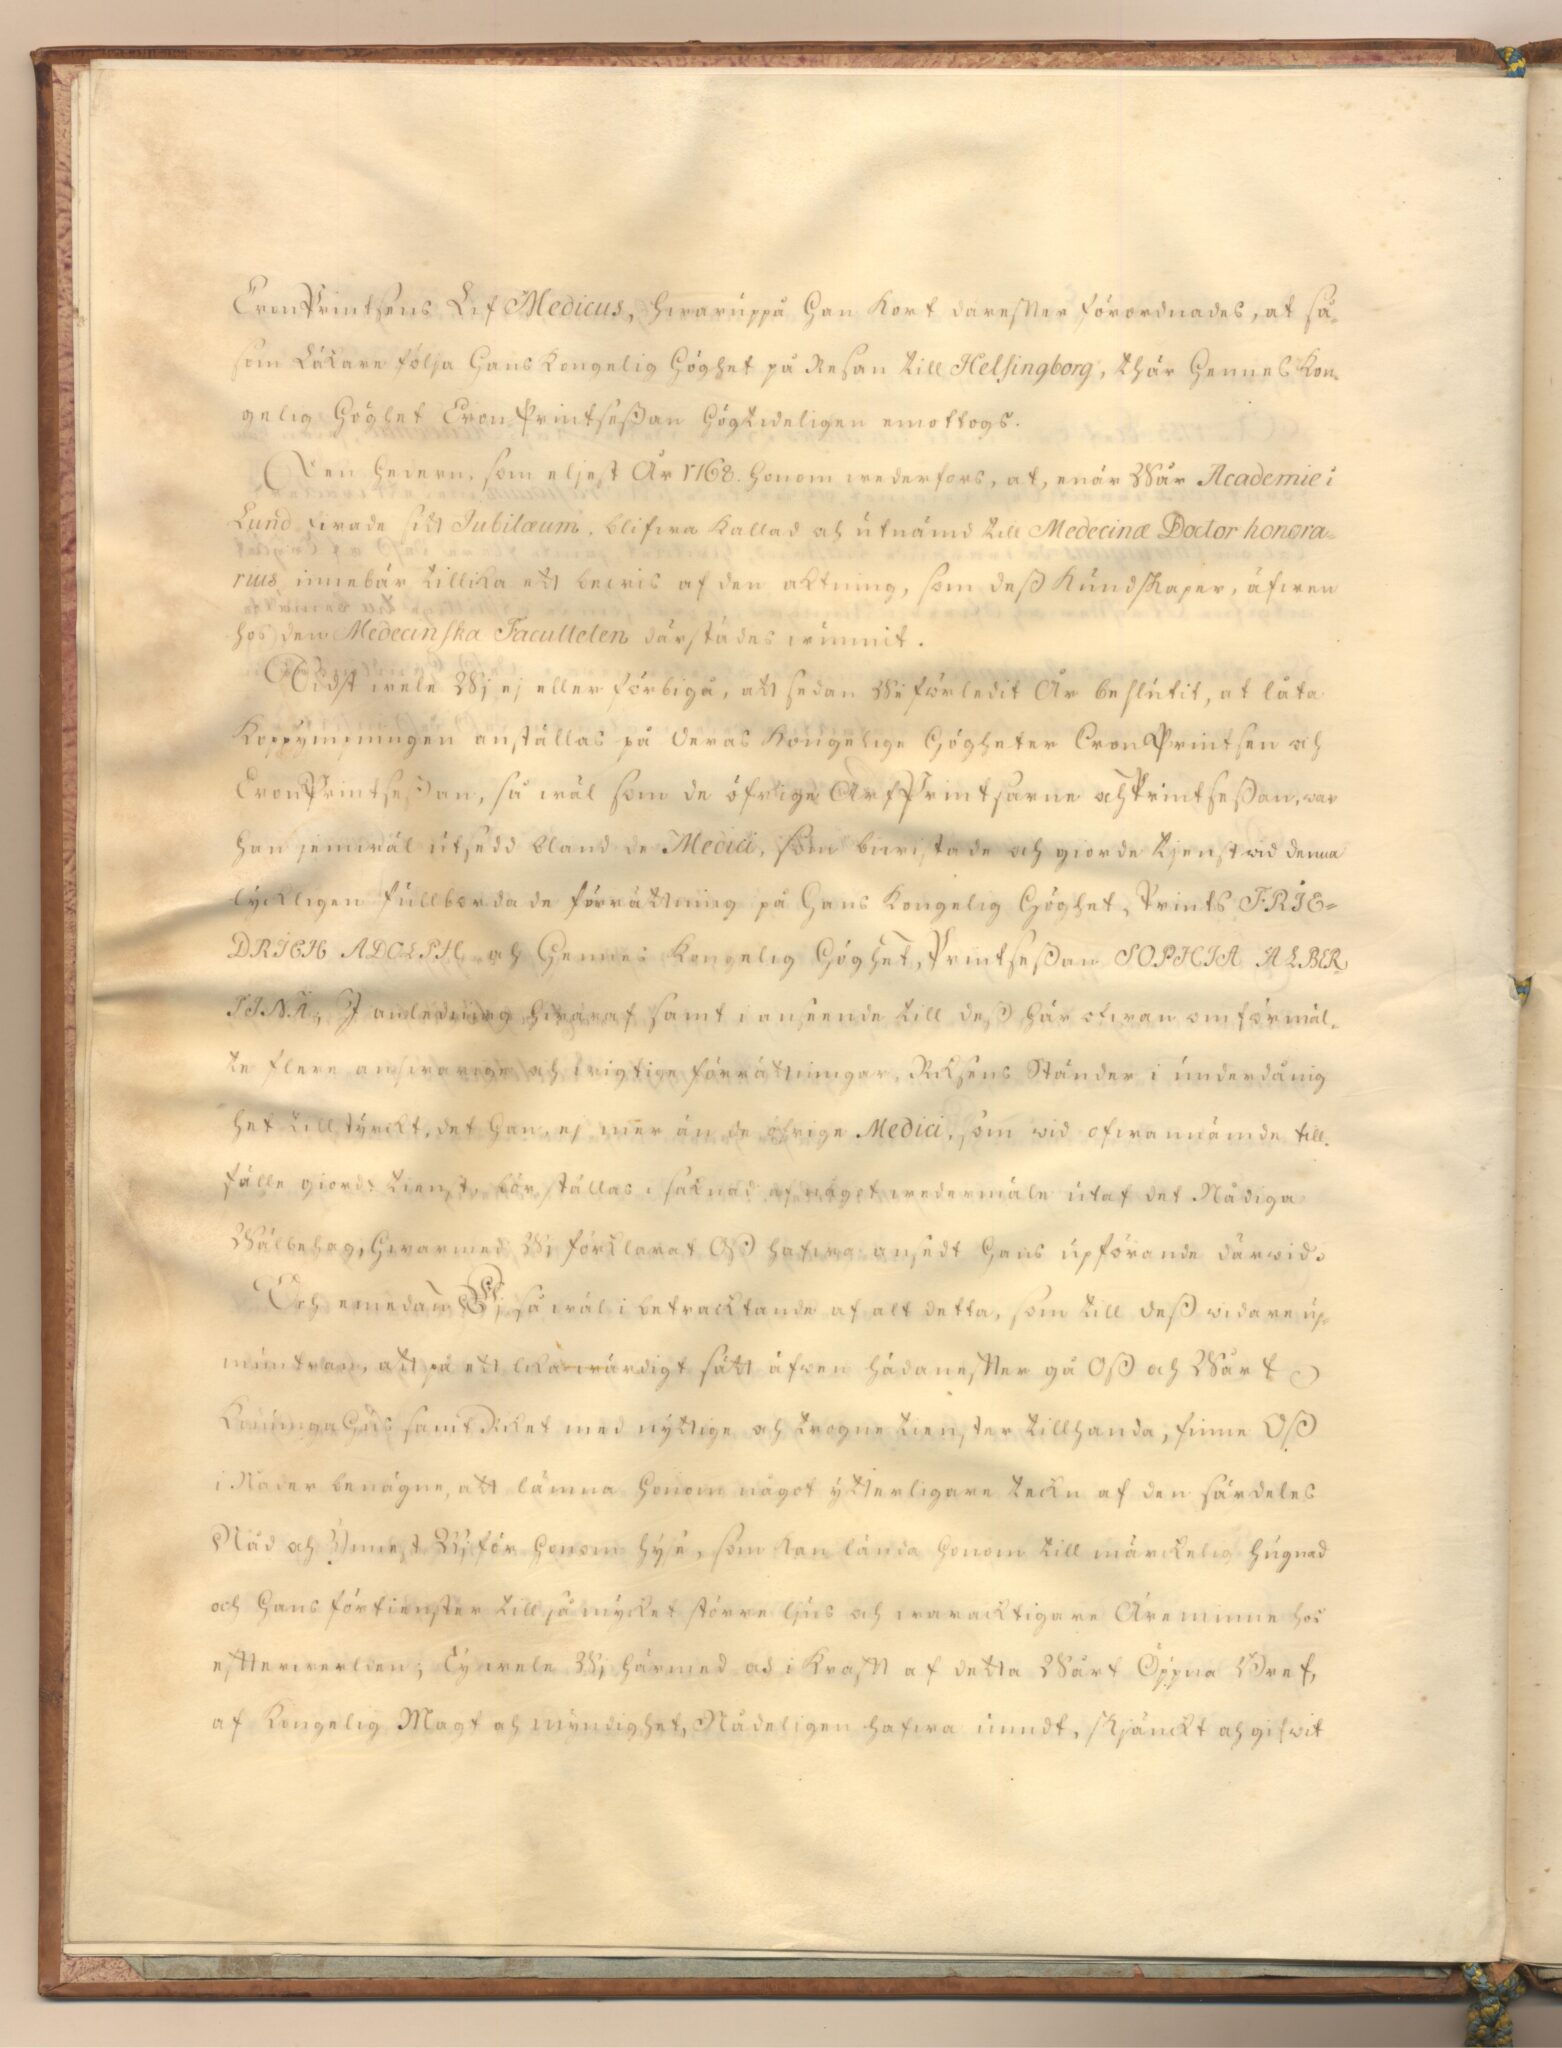 CronPrintsens Lif Medicus, hwaruppå Han kort darefter förordnades, at så-
som Läkare följa Hans Kongelig Höghet på Resan till Helsingborg, thär Hennes Kon-
gelig Höghet CronPrintseßan högtideligen emottogs.
Den hedern, som eljest År 1768. honom wederfors, at, enär Wår Academie i
Lund firade sitt Jubilæum, blifwa kallad och utnämd till Medecinæ Doctor honora-
rius, innebär tillika ett bewis af den aktning, som deß Kundskaper, äfwen
hos den Medecinska Faculteten därstädes wunnit.
Sidst wele Wi ej eller förbigå, att sedan Wi förledit År beslutit, at låta
Koppympningen anställas på Deras Kongelige Högheter CronPrintsen och
CronPrintseßan, så wäl som de öfrige ArfPrintsarne och Printseßan, war
han jemwäl utsedd bland de Medici, som biwistade och giorde tjenst wid denna
lyckligen fullbordade förrättning på Hans Kongelig Höghet, Prints FRIE-
DRICH ADOLPH och Hennes Kongelig Höghet, Printseßan SOPHIA ALBER-
TINA; I anledning hwaraf samt i anseende till deß här ofwan omförmäl-
te flere answarige och wigtige förrättningar, Riksens Ständer i underdånig
het tillstyrckt, det Han, ej mer än de öfrige Medici, som wid ofwannämde till-
fälle giordt tienst, bör ställas i saknad af något wedermäle utaf det Nådiga
Wälbehag, hwarmed Wi förklarat Oß hafwa ansedt Hans upförande därwid.
Och emedan Wi, så wäl i betracktande af alt detta, som till deß widare up-
muntran, att på ett lika wärdigt sätt äfwen hädanefter gå Oß och Wårt
Konunga Hus samt Riket med nyttige och trogne tienster tillhanda, finne Oß
i Nåder benägne, att lämna honom något ytterligare teckn af den särdeles
Nåd och Ynnest Wi för honom hyse, som kan lända honom till märckelig hugnad
och Hans förtienster till så mycket större ljus och waracktigare Äreminne hos
efterwerlden; Ty wele Wi härmed och i kraft af detta Wårt Öppna Bref,
af Kongelig Magt och myndighet, Nådeligen hafwa undt, skjänckt och gifwit